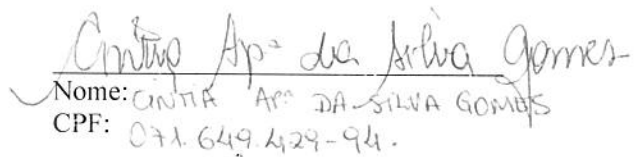 Cintia Apª da Silva Gomes
Nome: CINTIA APª DA SILVA GOMES
CPF: 071.649.429-94.